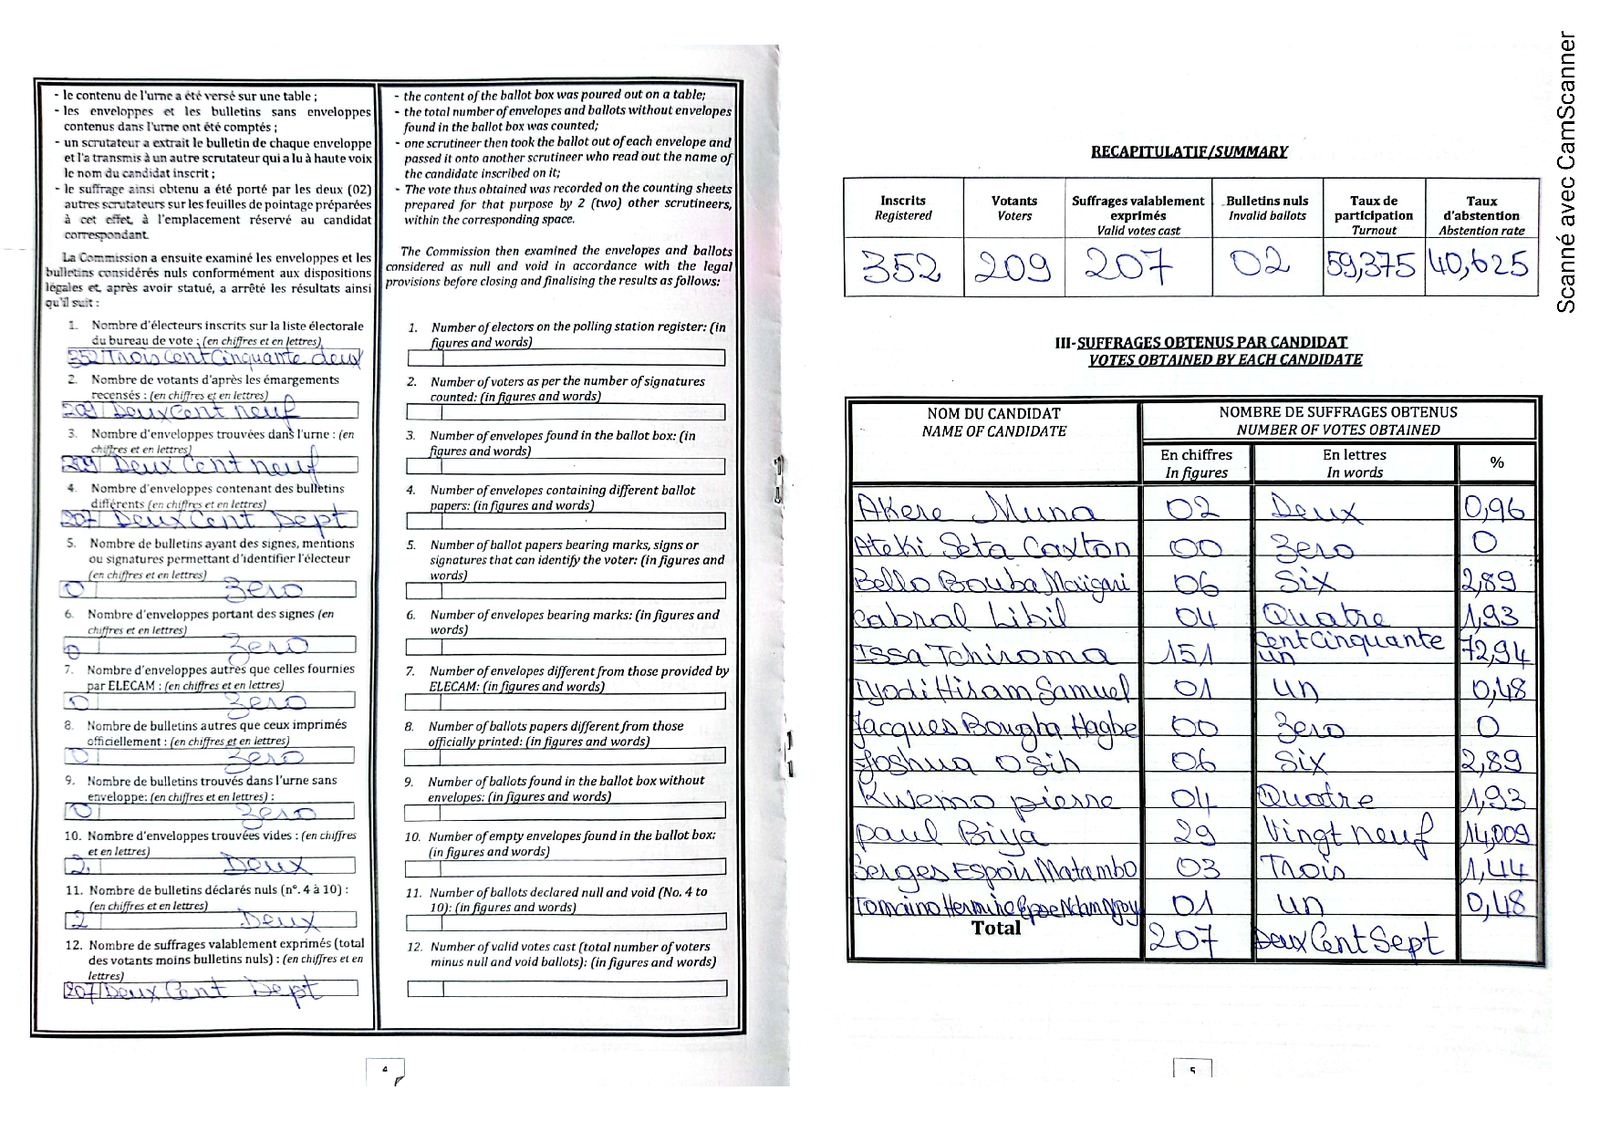 - le contenu de l'urne a été versé sur une table ;
- les enveloppes et les bulletins sans enveloppes
contenus dans l'urne ont été comptés ;
- un scrutateur a extrait le bulletin de chaque enveloppe
et l'a transmis à un autre scrutateur qui a lu à haute voix
le nom du candidat inscrit ;
- le suffrage ainsi obtenu a été porté par les deux (02)
autres scrutateurs sur les feuilles de pointage préparées
à cet effet, à l'emplacement réservé au candidat
correspondant.
La Commission a ensuite examiné les enveloppes et les
bulletins considérés nuls conformément aux dispositions
légales et, après avoir statué, a arrêté les résultats ainsi
qu'il suit :
1. Nombre d'électeurs inscrits sur la liste électorale
du bureau de vote : (en chiffres et en lettres)
352 Trois Cent Cinquante deux
2. Nombre de votants d'après les émargements
recensés : (en chiffres et en lettres)
209 Deux Cent neuf
3. Nombre d'enveloppes trouvées dans l'urne : (en
chiffres et en lettres)
209 Deux Cent neuf
4. Nombre d'enveloppes contenant des bulletins
différents (en chiffres et en lettres)
207 Deux Cent Sept
5. Nombre de bulletins ayant des signes, mentions
ou signatures permettant d'identifier l'électeur
(en chiffres et en lettres)
0 Zero
6. Nombre d'enveloppes portant des signes (en
chiffres et en lettres)
0 Zero
7. Nombre d'enveloppes autres que celles fournies
par ELECAM : (en chiffres et en lettres)
0 Zero
8. Nombre de bulletins autres que ceux imprimés
officiellement : (en chiffres et en lettres)
0 Zero
9. Nombre de bulletins trouvés dans l'urne sans
enveloppe: (en chiffres et en lettres) :
0 Zero
10. Nombre d'enveloppes trouvées vides : (en chiffres
et en lettres)
2 Deux
11. Nombre de bulletins déclarés nuls (n°. 4 à 10) :
(en chiffres et en lettres)
2 Deux
12. Nombre de suffrages valablement exprimés (total
des votants moins bulletins nuls) : (en chiffres et en
lettres)
207 Deux Cent Sept
- the content of the ballot box was poured out on a table;
- the total number of envelopes and ballots without envelopes
found in the ballot box was counted;
- one scrutineer then took the ballot out of each envelope and
passed it onto another scrutineer who read out the name of
the candidate inscribed on it;
- The vote thus obtained was recorded on the counting sheets
prepared for that purpose by 2 (two) other scrutineers,
within the corresponding space.
The Commission then examined the envelopes and ballots
considered as null and void in accordance with the legal
provisions before closing and finalising the results as follows:
1. Number of electors on the polling station register: (in
figures and words)
2. Number of voters as per the number of signatures
counted: (in figures and words)
3. Number of envelopes found in the ballot box: (in
figures and words)
4. Number of envelopes containing different ballot
papers: (in figures and words)
5. Number of ballot papers bearing marks, signs or
signatures that can identify the voter: (in figures and
words)
6. Number of envelopes bearing marks: (in figures and
words)
7. Number of envelopes different from those provided by
ELECAM: (in figures and words)
8. Number of ballots papers different from those
officially printed: (in figures and words)
9. Number of ballots found in the ballot box without
envelopes: (in figures and words)
10. Number of empty envelopes found in the ballot box:
(in figures and words)
11. Number of ballots declared null and void (No. 4 to
10): (in figures and words)
12. Number of valid votes cast (total number of voters
minus null and void ballots): (in figures and words)
4
RECAPITULATIF/SUMMARY
Inscrits Registered | Votants Voters | Suffrages valablement exprimés Valid votes cast | Bulletins nuls Invalid ballots | Taux de participation Turnout | Taux d'abstention Abstention rate
352 209 207 02 59,375 40,625
III-SUFFRAGES OBTENUS PAR CANDIDAT
VOTES OBTAINED BY EACH CANDIDATE
NOM DU CANDIDAT NOMBRE DE SUFFRAGES OBTENUS
NAME OF CANDIDATE NUMBER OF VOTES OBTAINED
En chiffres En lettres %
In figures In words
Akere Muna 02 Deux 0,96
Ateki Seta Caxton 00 Zero 0
Bello Bouba Maïgari 06 Six 2,89
Cabral Libil 04 Quatre 1,93
Issa Tchiroma 151 Cent Cinquante un 72,94
Iyodi Hiram Samuel 01 un 0,48
Jacques Bougha Hagbe 00 Zero 0
Joshua Osih 06 Six 2,89
Kwemo pierre 04 Quatre 1,93
paul Biya 29 Vingt neuf 14,009
Serges Espoir Matambo 03 Trois 1,44
Tomaino Hermine 01 un 0,48
Total 207 Deux Cent Sept
5
Scanné avec CamScanner